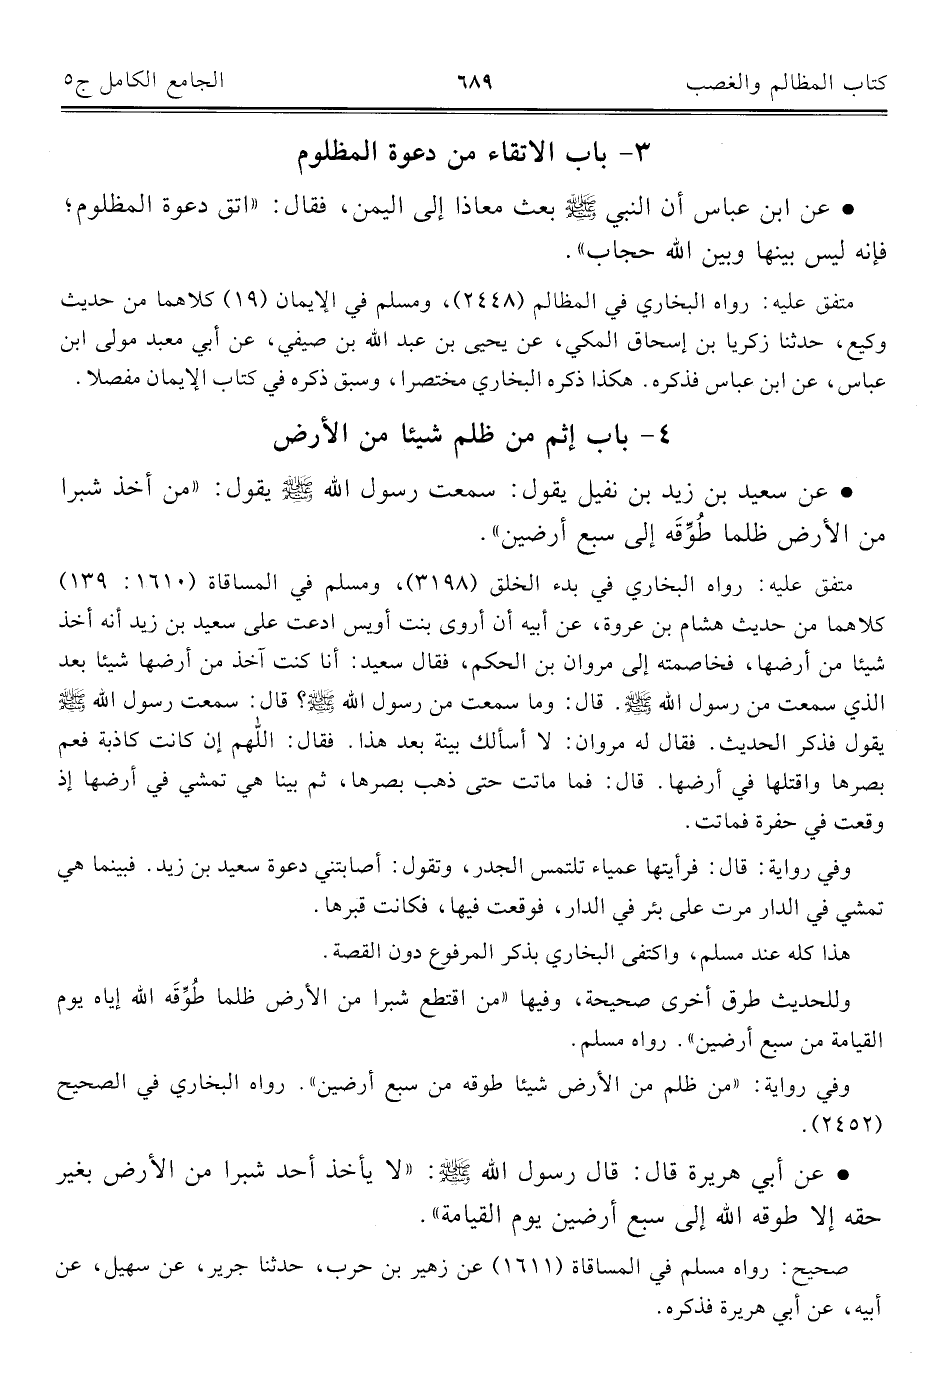 كتاب المظالم والغصب ٦٨٩ الجامع الكامل ج٥
٣- باب الاتقاء من دعوة المظلوم
● عن ابن عباس أن النبي ﷺ بعث معاذا إلى اليمن، فقال: «اتق دعوة المظلوم؛
فإنه ليس بينها وبين الله حجاب».
متفق عليه: رواه البخاري في المظالم (٢٤٤٨)، ومسلم في الإيمان (١٩) كلاهما من حديث
وكيع، حدثنا زكريا بن إسحاق المكي، عن يحيى بن عبد الله بن صيفي، عن أبي معبد مولى ابن
عباس، عن ابن عباس فذكره. هكذا ذكره البخاري مختصرا، وسبق ذكره في كتاب الإيمان مفصلا.
٤- باب إثم من ظلم شيئا من الأرض
● عن سعيد بن زيد بن نفيل يقول: سمعت رسول الله ﷺ يقول: «من أخذ شبرا
من الأرض ظلما طُوِّقَه إلى سبع أرضين».
متفق عليه: رواه البخاري في بدء الخلق (٣١٩٨)، ومسلم في المساقاة (١٦١٠: ١٣٩)
كلاهما من حديث هشام بن عروة، عن أبيه أن أروى بنت أويس ادعت على سعيد بن زيد أنه أخذ
شيئا من أرضها، فخاصمته إلى مروان بن الحكم، فقال سعيد: أنا كنت آخذ من أرضها شيئا بعد
الذي سمعت من رسول الله ﷺ. قال: وما سمعت من رسول الله ﷺ؟ قال: سمعت رسول الله ﷺ
يقول فذكر الحديث. فقال له مروان: لا أسألك بينة بعد هذا. فقال: اللّهم إن كانت كاذبة فعم
بصرها واقتلها في أرضها. قال: فما ماتت حتى ذهب بصرها، ثم بينا هي تمشي في أرضها إذ
وقعت في حفرة فماتت.
وفي رواية: قال: فرأيتها عمياء تلتمس الجدر، وتقول: أصابتني دعوة سعيد بن زيد. فبينما هي
تمشي في الدار مرت على بئر في الدار، فوقعت فيها، فكانت قبرها.
هذا كله عند مسلم، واكتفى البخاري بذكر المرفوع دون القصة.
وللحديث طرق أخرى صحيحة، وفيها «من اقتطع شبرا من الأرض ظلما طُوِّقَه الله إياه يوم
القيامة من سبع أرضين». رواه مسلم.
وفي رواية: «من ظلم من الأرض شيئا طوقه من سبع أرضين». رواه البخاري في الصحيح
(٢٤٥٢).
● عن أبي هريرة قال: قال رسول الله ﷺ: «لا يأخذ أحد شبرا من الأرض بغير
حقه إلا طوقه الله إلى سبع أرضين يوم القيامة».
صحيح: رواه مسلم في المساقاة (١٦١١) عن زهير بن حرب، حدثنا جرير، عن سهيل، عن
أبيه، عن أبي هريرة فذكره.